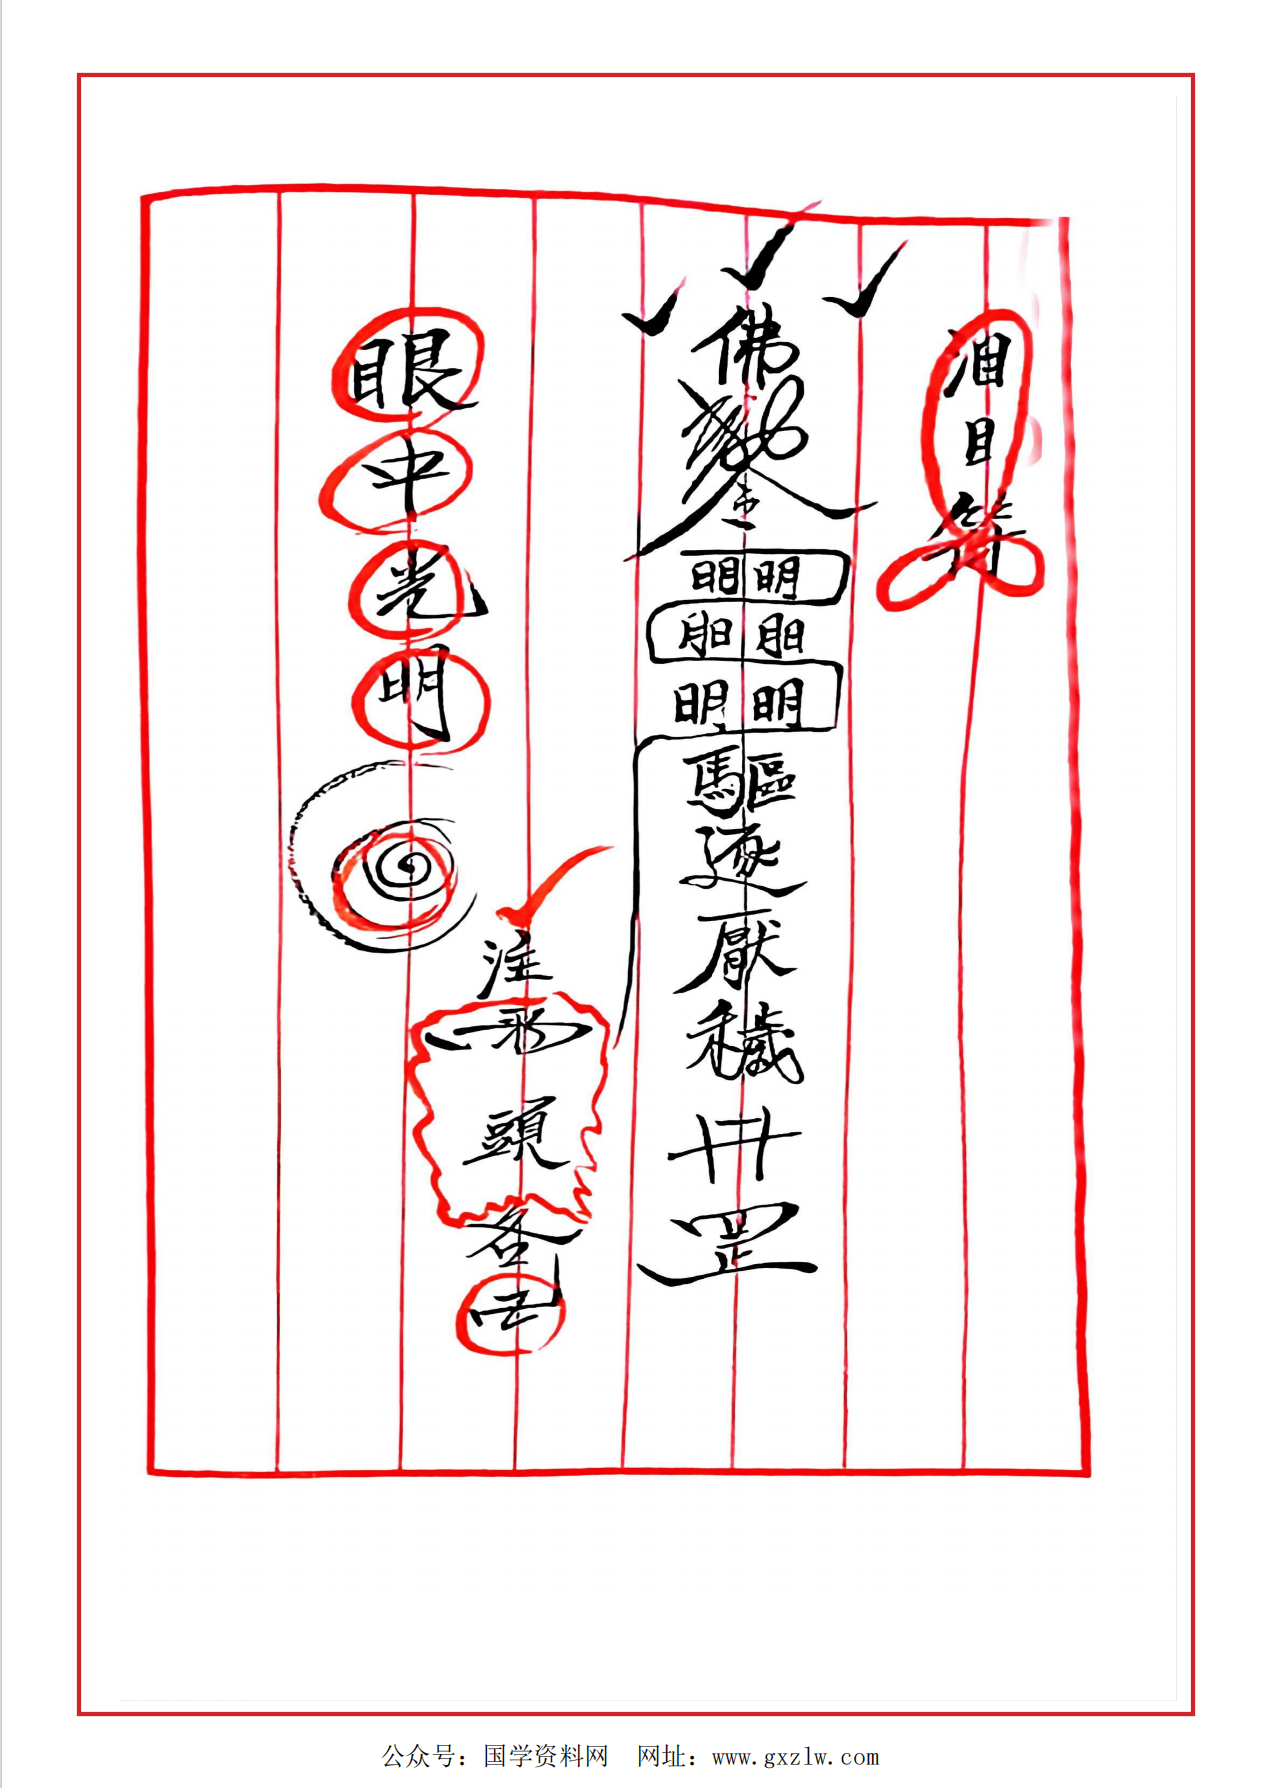 目符
佛
明明
明明
明明
驅逐厭穢
罡
注
形
頭
各
眼中光明
公众号：国学资料网　网址：www.gxzlw.com